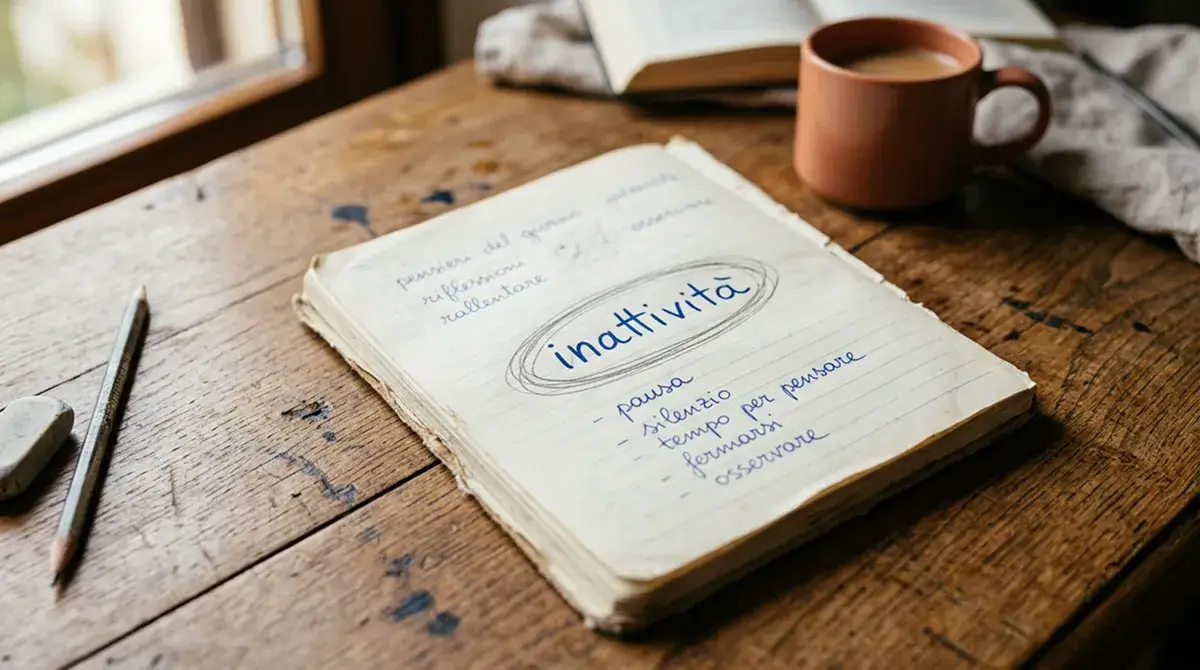 pensieri del giorno
riflessioni osservare
rallentare
inattività
- pausa
- silenzio
tempo per pensare
- fermarsi
- osservare